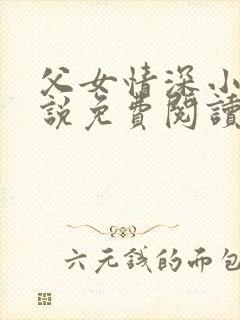 父女情深小
說免費閱讀
六元钱的面包